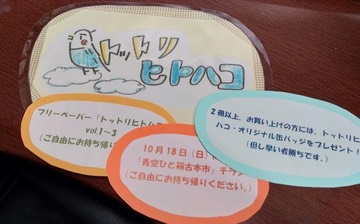 トットリ
ヒトハコ
フリーペーパー「トットリヒトハコ
vol.1~3
(ご自由にお持ち帰り
10月18日(日)
「青空ひと箱古本市」チラシ
(ご自由にお持ち帰りください。)
2冊以上、お買い上げの方には、トットリヒト
ハコ・オリジナル缶バッジをプレゼント!
(但し早い者勝ちです。)